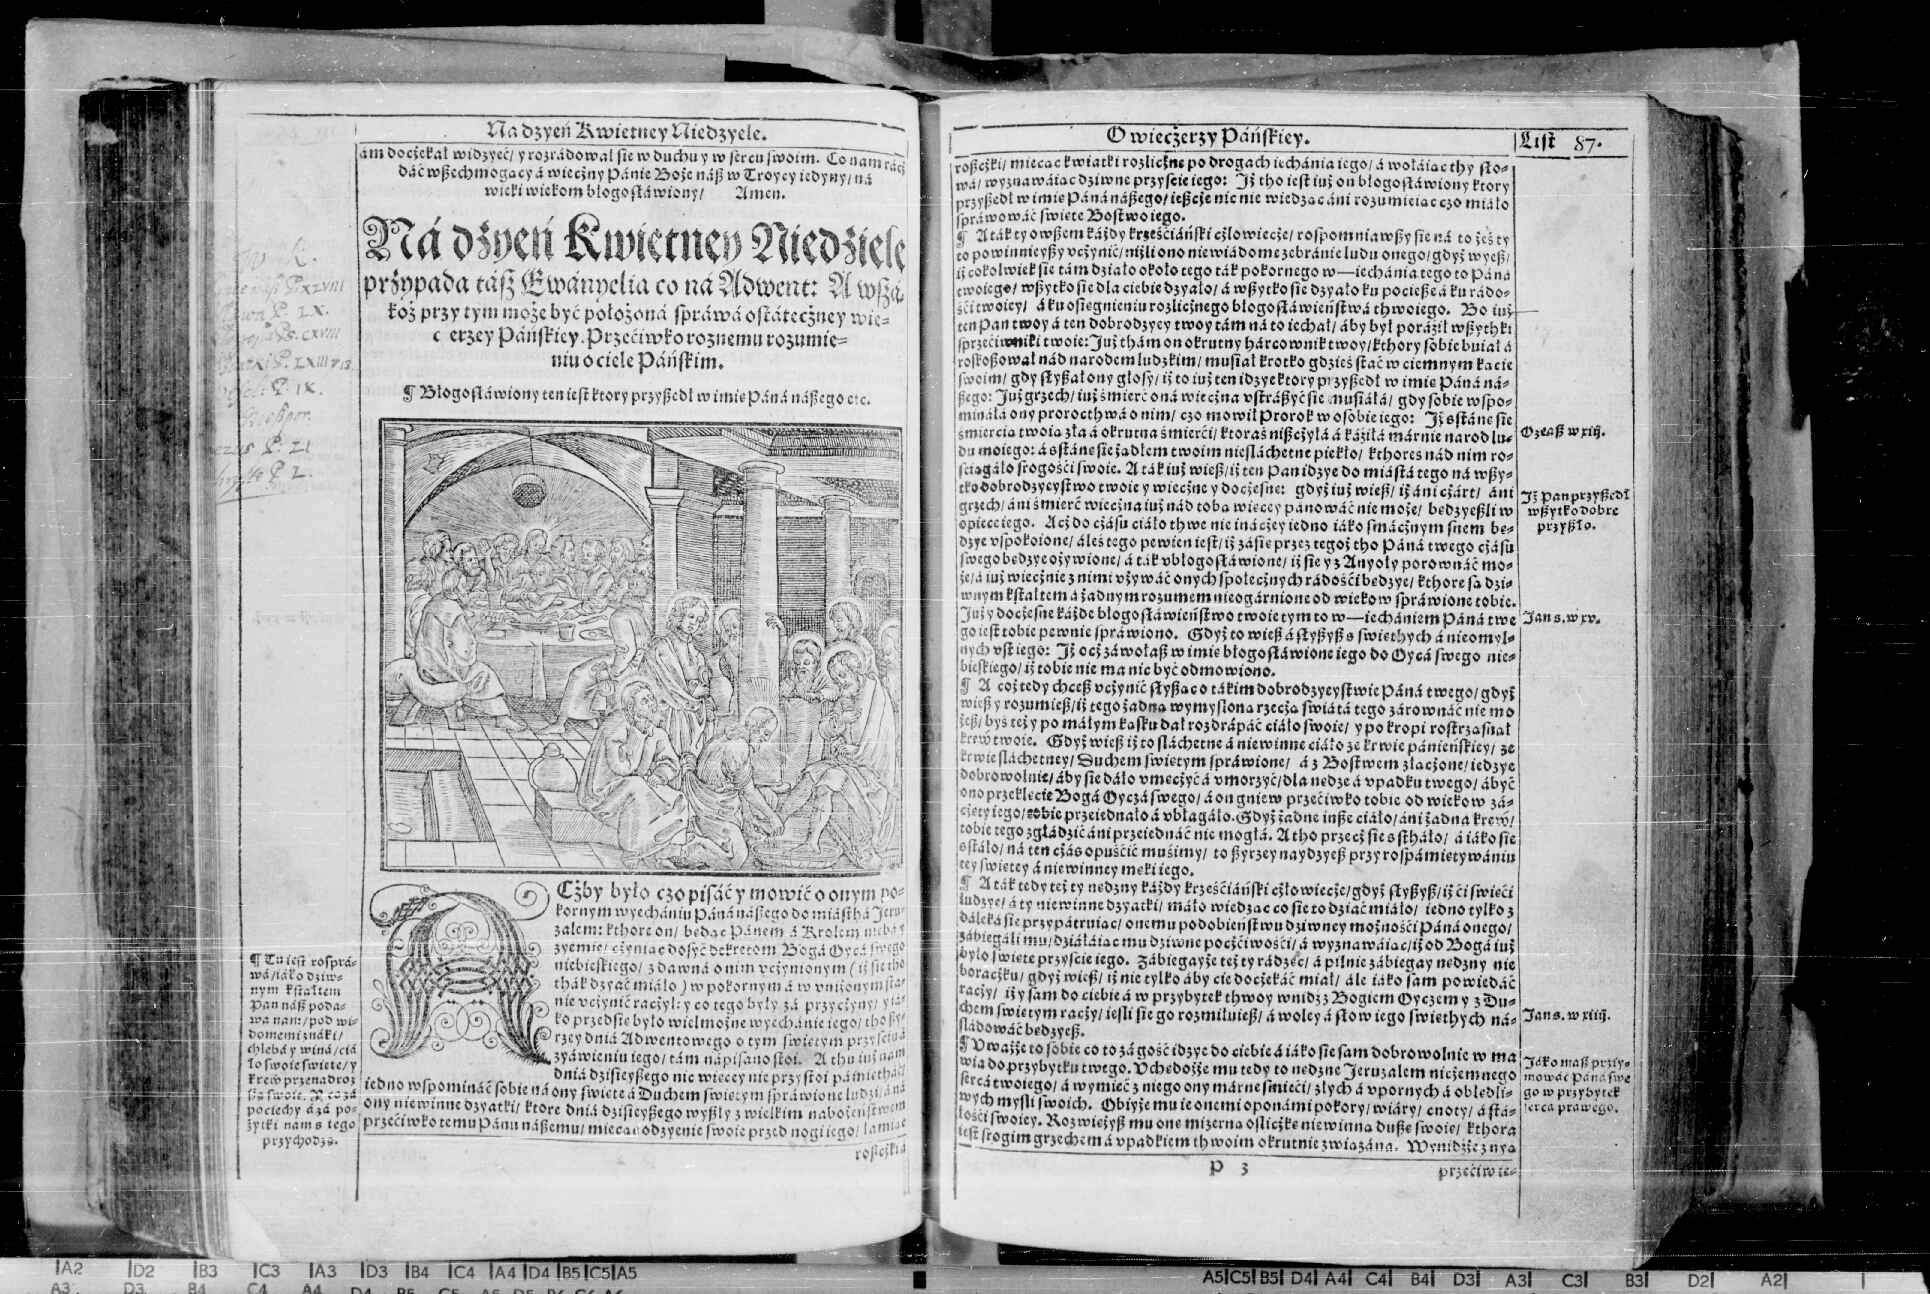 Na dzyeń Kwietney Niedzyele.
am docżekał widzyeć/ y rozradował sie w duchu y w sercu swoim. Co nam racż
dáć wßechmogacy á wiecżny Pánie Boże náß w Troycy iedyny/ ná
wieki wiekom błogosłáwiony/ Amen.
Ná dżyeń Kwietney Niedziele
prżypada táß Ewányelia co ná Adwent: A wßá-
koż przy tym może być położoná spráwá ostátecżney wie-
c erzey Páńskiey. Przećiwko roznemu rozumie-
niu o ciele Páńskim.
¶ Błogosłáwiony ten iest ktory przyßedł w imie Páná náßego etc.
ACżby było czo pisáć y mowić o onym po-
kornym wyechániu Páná náßego do miásthá Jeru-
zalem: kthore on/ bedac Pánem á Krolem niebá y
zyemie/ cżyniac dosyć dekretom Bogá Oycá swego
niebieskiego/ z dawná o nim vcżynionym (iż sie tho
thák dzyać miáło) w pokornym á w vniżonym sta-
nie vcżynić racżył: y co tego były zá przycżyny/ y iá-
ko przedsie było wielmożne wyechánie iego/ tho ßy-
rzey dniá Adwentowego o tym swietym przyściu á
zyáwieniu iego/ tám nápisano stoi. A thu iuż nam
dniá dzisieyßego nic wiecey nie przystoi pámiethać/
iedno wspomináć sobie ná ony swiete á Duchem swietym spráwione ludzi/ á ná
ony niewinne dzyatki/ ktore dniá dzisieyßego wyßły z wielkim nabożeństwem
przećiwko temu Pánu náßemu/ miecac odzyenie swoie przed nogi iego/ łamiac
roßcżki
¶ Tu iest rosprá-
wá/ iáko dziw-
nym kstałtem
Pan náß poda-
wa nam/ pod wi-
domemi znáki/
chlebá y winá/ ciá
ło swoie swiete/ y
krew przenadroż
ßą swoie. Y co zá
pociechy á zá po-
żytki nam s tego
przychodzą.
O wiecżerzy Páńskiey.
List 87.
roßcżki/ miecac kwiatki rozlicżne po drogach iechánia iego/ á wołáiac thy sło-
wá/ wyznawáiac dziwne przyscie iego: Jż tho iest iuż on błogosłáwiony ktory
przyßedł w imie Páná náßego/ ießcże nic nie wiedzac áni rozumieiac czo miáło
spráwowáć swiete Bostwo iego.
¶ A ták ty owßem káżdy krześćiáński cżłowiecże/ rospomniawßy sie ná to żeś ty
to powinnieyßy vcżynić/ niżli ono niewiádome zebránie ludu onego/ gdyż wyeß/
iż cokolwiek sie tám działo około tego ták pokornego w—iechánia tego to Páná
twoiego/ wßytko sie dla ciebie dzyało/ á wßytko sie dzyało ku pocieße á ku rádo-
śći twoiey/ á ku osiegnieniu rozlicżnego błogosłáwieństwá thwoiego. Bo iuż
ten Pan twoy á ten dobrodzycy twoy tám ná to iechał/ áby był poráżił wßythki
sprzećiwniki twoie: Już thám on okrutny hárcownik twoy/ kthory sobie buiał á
roskoßował nád narodem ludzkim/ musiał krotko gdzieś stać w ciemnym kącie
swoim/ gdy słyßał ony głosy/ iż to iuż ten idzye ktory przyßedł w imie Páná ná-
ßego: Już grzech/ iuż śmierć oná wiecżna vstráßyć sie musiáłá/ gdy sobie wspo-
mináłá ony prorocthwá o nim/ czo mowił Prorok w osobie iego: Jż sstáne sie
śmiercią twoią zła á okrutna śmierći/ ktoraś nißcżyłá á káżiłá márnie narod lu-
du moiego: á sstáne sie żadłem twoim nieslachetne piekło/ kthoreś nád nim ro-
sciągáło srogośći swoie. A ták iuż wieß/ iż ten Pan idzye do miástá tego ná wßy-
tko dobrodzyeystwo twoie y wiecżne y docżesne: gdyż iuż wieß/ iż áni cżart/ áni
grzech/ áni śmierć wiecżna iuż nád tobą wiecey pánowáć nie może/ bedzyeßli w
opiece iego. Acż do cżásu ciáło thwe nie inácżey iedno iáko smácżnym snem be-
dzye vspokoione/ áleś tego pewien iest/ iż zásie przez tegoż tho Páná twego cżásu
swego bedzye ożywione/ á ták vbłogosłáwione/ iż sie y z Anyoły porownáć mo-
że/ á iuż wiecżnie z nimi vżywáć onych społecżnych rádośći bedzye/ kthore są dzi-
wnym kstałtem á żadnym rozumem nieogárnione od wiekow spráwione tobie.
Już y docżesne káżde błogosłáwieństwo twoie tym to w—iechániem Páná twe
go iest tobie pewnie spráwiono. Gdyż to wieß á słyßyß s swiethych á nieomyl-
nych vst iego: Jż ocż záwołaß w imie błogosłáwione iego do Oycá swego nie-
bieskiego/ iż tobie nie ma nic być odmowiono.
¶ A coż tedy chceß vcżynić słyßąc o tákim dobrodzyeystwie Páná twego/ gdyż
wieß y rozumieß/ iż tego żadna wymyslona rzecżą swiátá tego zárownáć nie mo
żeß/ byś też y po máłym kąsku dał rozdrápáć ciáło swoie/ y po kropi rostrzásnął
krew twoie. Gdyż wieß iż to slachetne á niewinne ciáło ze krwie pánieńskiey/ ze
krwie slachetney/ Duchem swietym spráwione/ á z Bostwem złącżone/ iedzye
dobrowolnie/ áby sie dáło vmecżyć á vmorzyć/ dla nedze á vpadku twego/ ábyć
ono przeklecie Bogá Oyczá swego/ á on gniew przećiwko tobie od wiekow zá-
cżety iego/ tobie przeiednáło á vbłagáło. Gdyż żadne inße ciáło/ áni żadna krew/
tobie tego zgłádzić áni przeiednáć nie mogłá. A tho przecż sie ssthało/ á iáko sie
sstáło/ ná ten cżás opuśćić muśimy/ to ßyrzey naydzyeß przy rospámietywániu
tey swietey á niewinney meki iego.
¶ A ták tedy też ty nedzny káżdy krześćiáński cżłowiecże/ gdyż słyßyß/ iż ći swieći
ludzye/ á ty niewinne dzyatki/ máło wiedząc co sie to dziáć miáło/ iedno tylko z
dáleká sie przypátruiąc/ onemu podobieństwu dziwney możnośći Páná onego/
zábiegáli mu/ działáiac mu dziwne pocżćiwośći/ á wyznawáiac/ iż od Bogá iuż
było swiete przyscie iego. Zábiegayże też ty rádzęć/ á pilnie zábiegay nedzny nie
boracżku/ gdyż wieß/ iż nie tylko áby cie docżekáć miał/ ále iáko sam powiedáć
racży/ iż y sam do ciebie á w przybytek thwoy wnidż z Bogiem Oyczem y z Du-
chem swietym racży/ iesli sie go rozmiłuieß/ á woley á słow iego swiethych ná-
sládowáć bedzyeß.
¶ Vważże to sobie co to zá gość idzye do ciebie á iáko sie sam dobrowolnie w ma
wia do przybytku twego. Vchedożże mu tedy to nedzne Jeruzalem nicżemnego
sercá twoiego/ á wymieć z niego ony márne śmieći/ złych á vpornych á obledli-
wych mysli swoich. Obiyże mu ie onemi oponámi pokory/ wiáry/ cnoty/ á stá-
łośći swoiey. Rozwieżyß mu one mizerna osłicżke niewinna duße swoie/ kthora
iest srogim grzechem á vpadkiem thwoim okrutnie zwiazána. Wynidżże z nya
P 3
przećiwie-
Ozeaß w xiij.
Jż Pan przyßedł
wßytko dobre
przyßło.
Jan s. w xv.
Jan s. w xiiij.
Jáko maß przyy-
mowáć Páná swe
go w przybytek
sercá práwego.
A2 D2 B3 C3 A3 D3 B4 C4 A4 D4 B5 C5 A5
A5 C5 B5 D4 A4 C4 B4 D3 A3 C3 B3 D2 A2